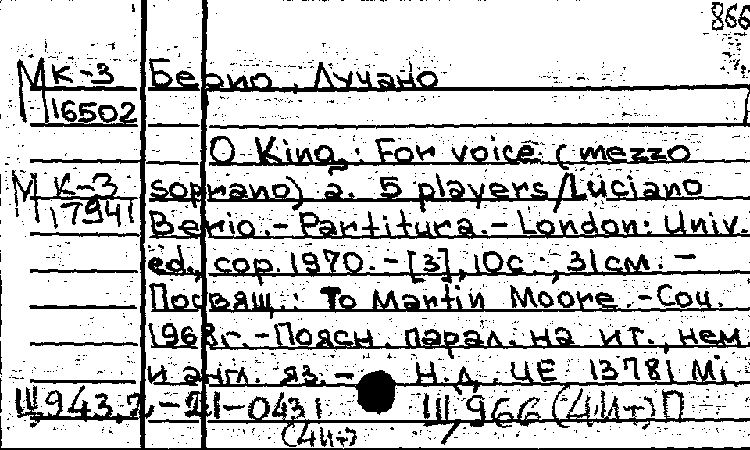 866
МК-3 Берио, Лучано
16502
O King: For voice (mezzo
МК-3 soprano) a. 5 players/Luciano
17941 Berio.- Partitura.- London: Univ.
ed., cop. 1970. - [3], 10с.; 31см. -
Посвящ.: To Martin Moore.-Соч.
1968г.-Поясн. парал. на ит., нем
и англ. яз. - Н.д. UE 13781 Mi
Щ943.2-21-043 Щ966(4Ит)П
(4Ит)